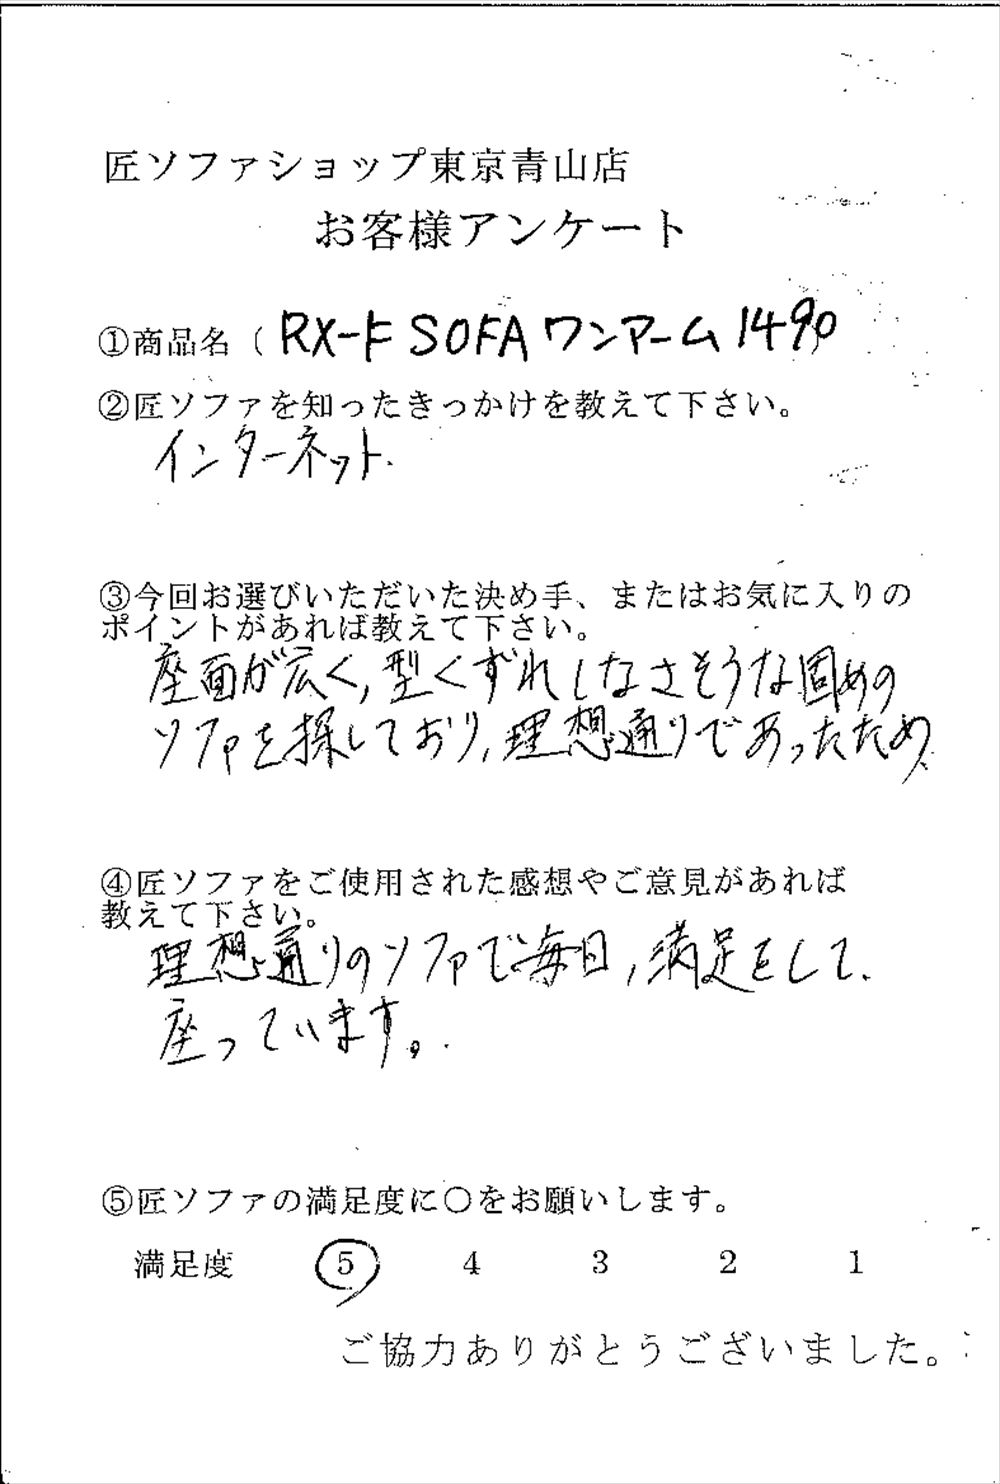 匠ソファショップ東京青山店
お客様アンケート
①商品名（ RX-F SOFA ワンアーム 1490
②匠ソファを知ったきっかけを教えて下さい。
インターネット.
③今回お選びいただいた決め手、またはお気に入りの
ポイントがあれば教えて下さい。
座面が広く, 型くずれしなさそうな固めの
ソファを探しており, 理想通りであったため.
④匠ソファをご使用された感想やご意見があれば
教えて下さい。
理想通りのソファで毎日, 満足をして.
座っています。
⑤匠ソファの満足度に〇をお願いします。
満足度 5 4 3 2 1
ご協力ありがとうございました。